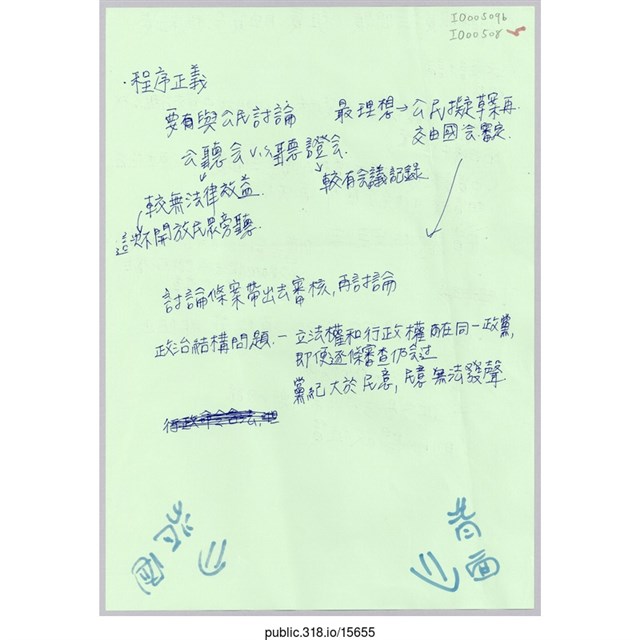 ID005096
ID00508
・程序正義
要有與公民討論
最理想→公民擬草案再
交由國會審定
公聽會 v.s 聽證會
較有會議記錄
較無法律效益
這次不開放民眾旁聽
討論條案帶出去審核,再討論
政治結構問題.—立法權和行政權都在同一政黨,
即便逐條審查仍會過
黨紀大於民意,民意無法發聲
背面